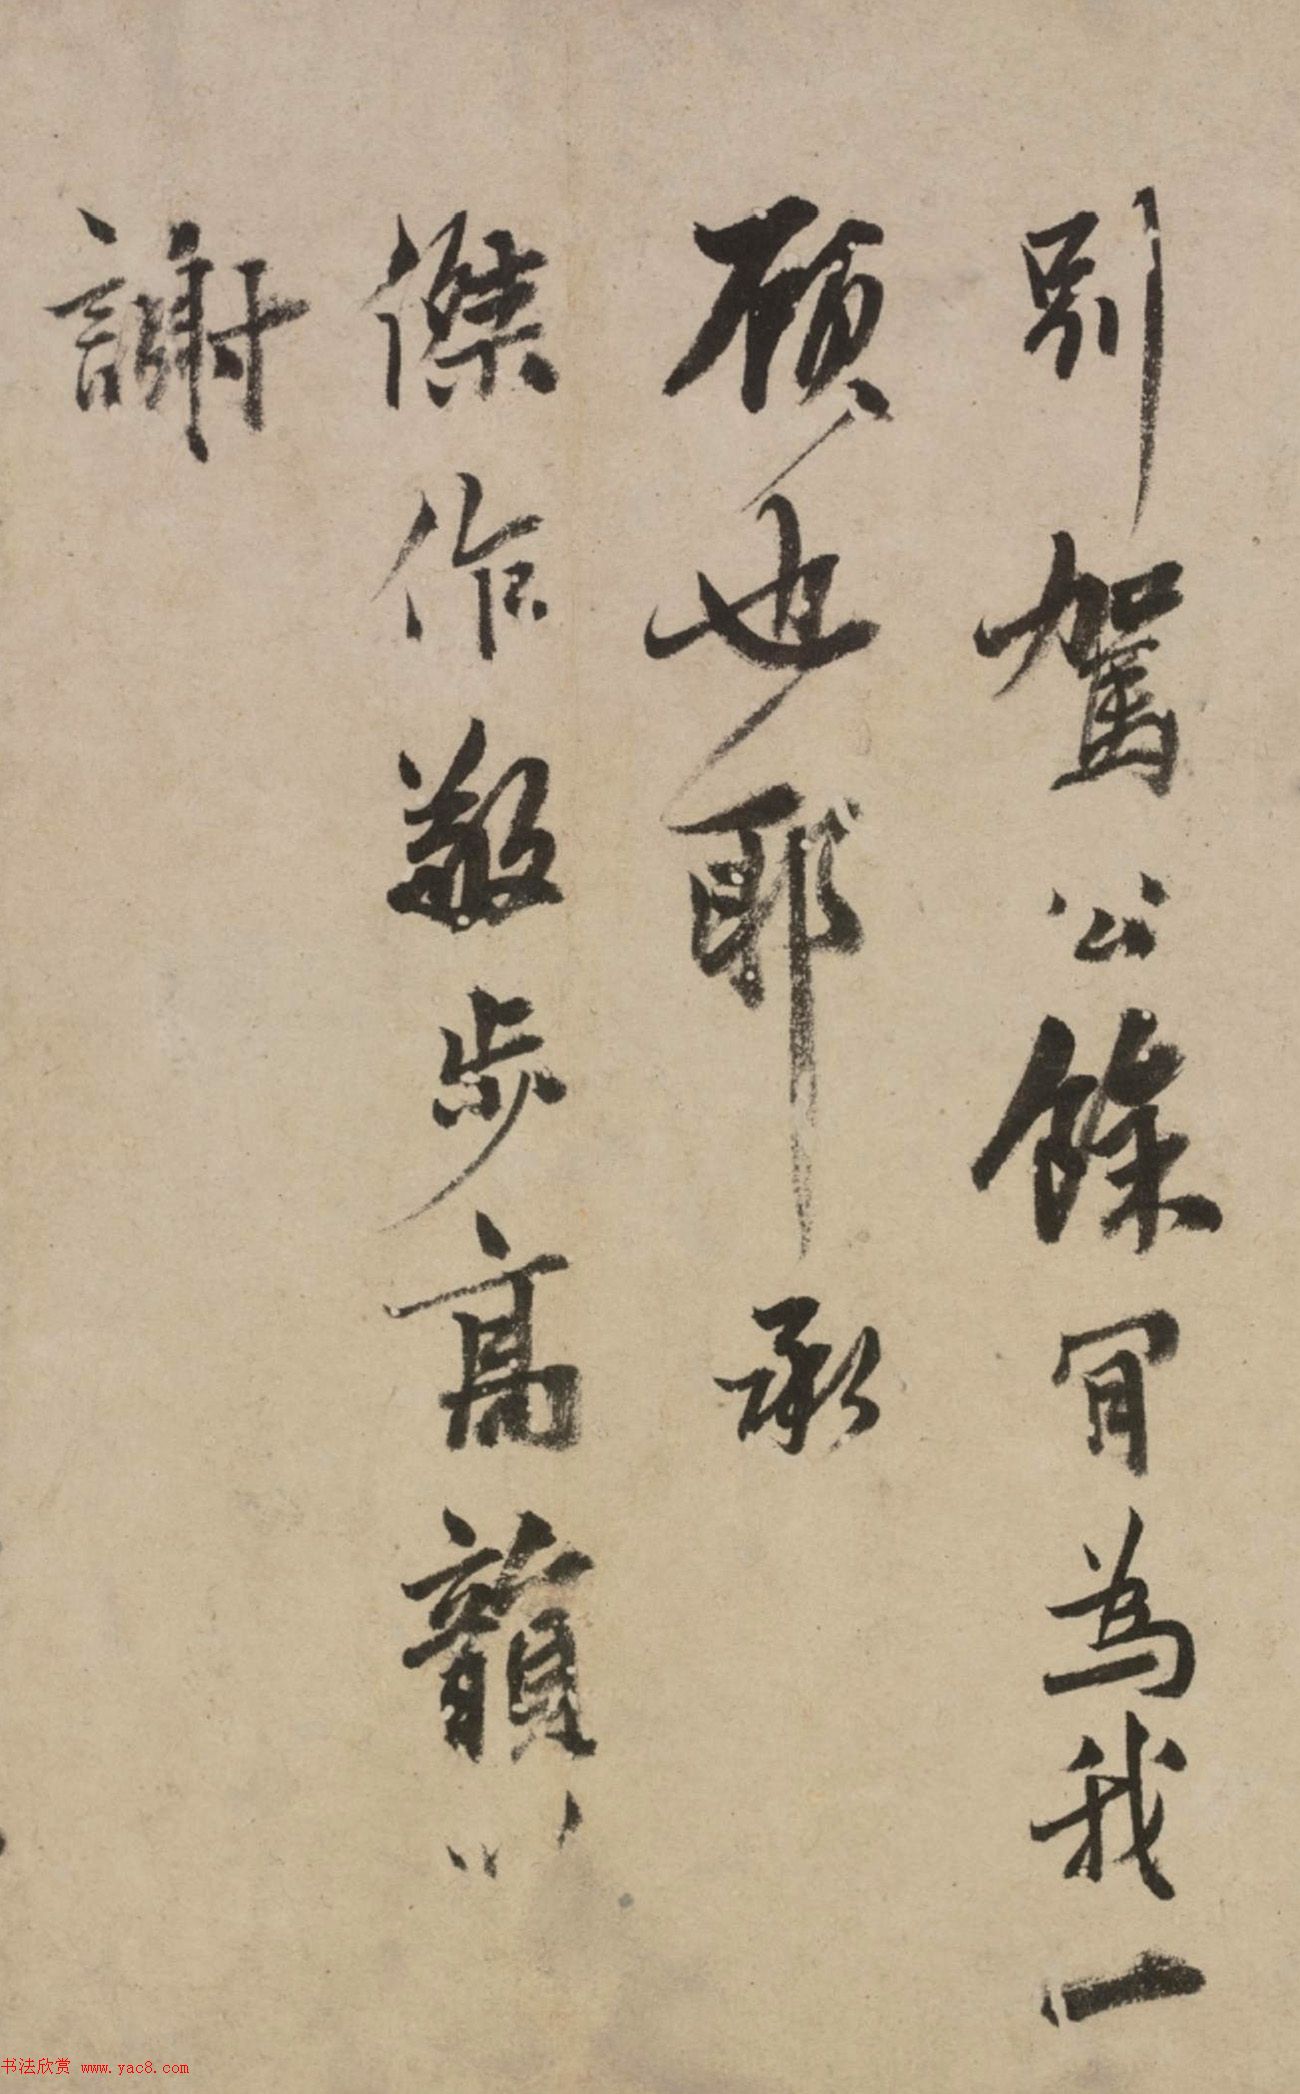 別駕公餘肎為我一
顧也耶承
傑作敬步高韻以
謝
书法欣赏 www.yac8.com